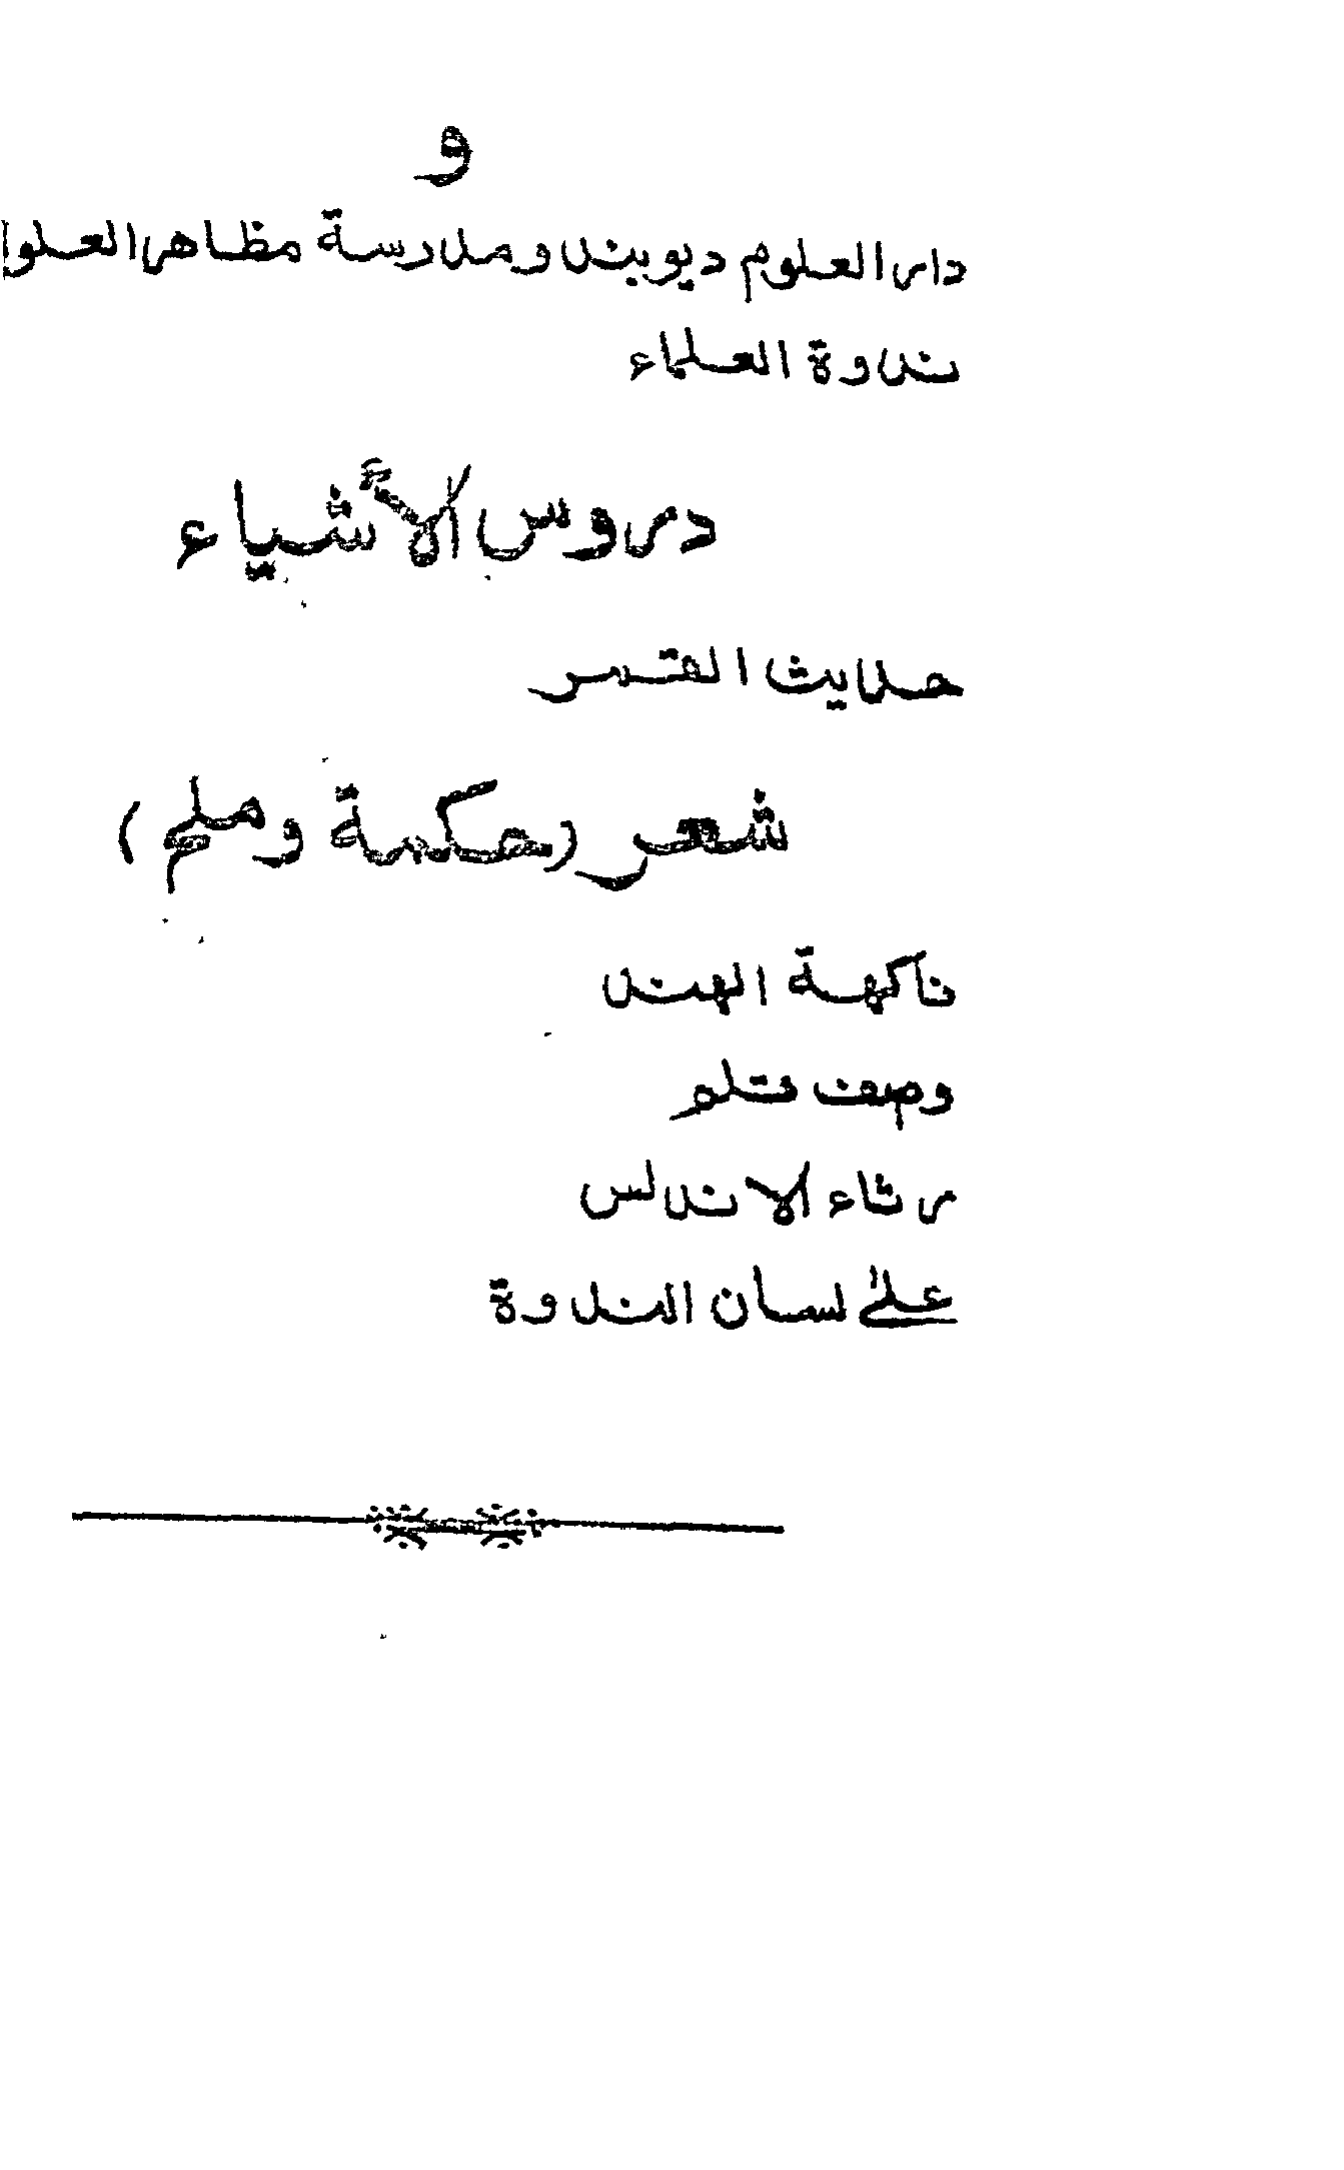 و
دار العلوم ديوبند ومدرسة مظاهر العلو
ندوة العلماء
دروس الأشياء
حديث القمر
شعر (حكمة وملح)
فاكهة الهند
وصف قلم
رثاء الاندلس
على لسان الندوة